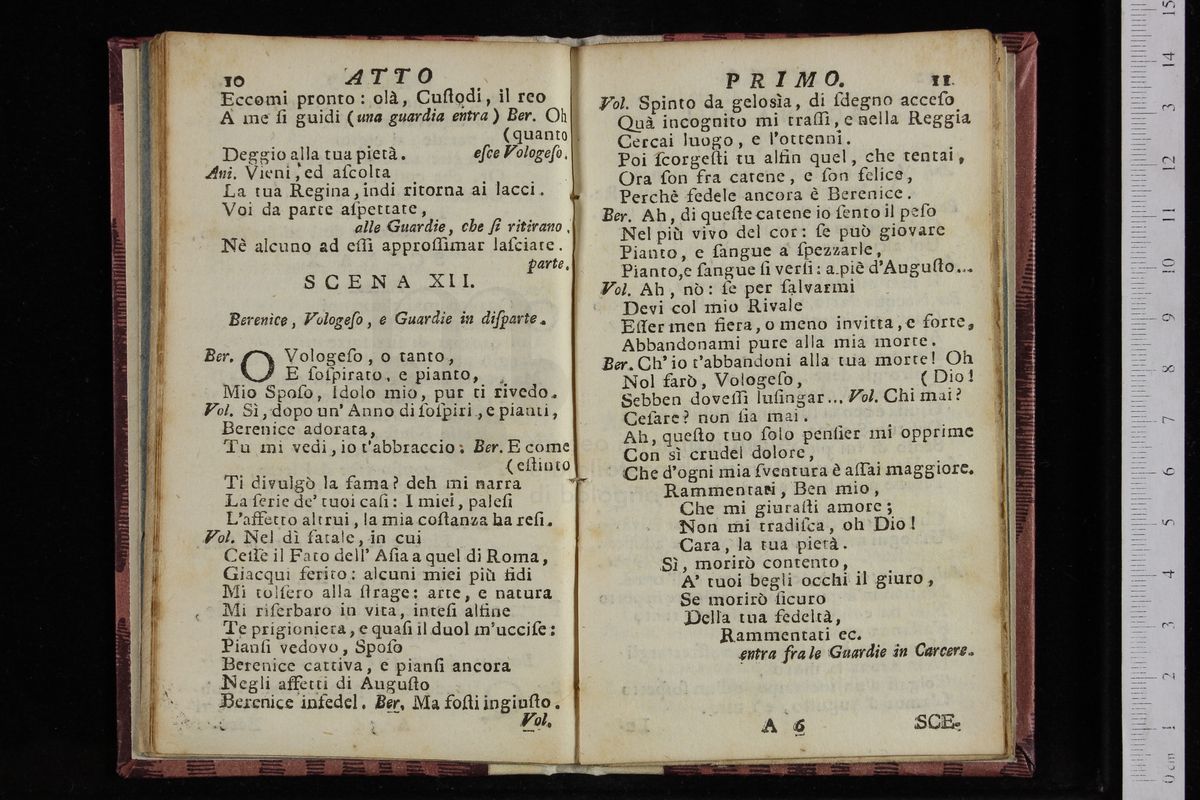 10 ATTO
Eccomi pronto: olà, Cuſtodi, il reo
A me ſi guidi (una guardia entra) Ber. Oh
(quanto
Deggio alla tua pietà. eſce Vologeſo.
Ani. Vieni, ed aſcolta
La tua Regina, indi ritorna ai lacci.
Voi da parte aſpettate,
alle Guardie, che ſi ritirano.
Nè alcuno ad eſſi approſſimar laſciate.
parte.
SCENA XII.
Berenice, Vologeſo, e Guardie in diſparte.
Ber. O Vologeſo, o tanto,
E ſoſpirato, e pianto,
Mio Spoſo, Idolo mio, pur ti rivedo.
Vol. Sì, dopo un' Anno di ſoſpiri, e pianti,
Berenice adorata,
Tu mi vedi, io t'abbraccio: Ber. E come
(eſtinto
Ti divulgò la fama? deh mi narra
La ſerie de' tuoi caſi: I miei, paleſi
L'affetto altrui, la mia coſtanza ha reſi.
Vol. Nel dì fatale, in cui
Ceſſe il Fato dell' Aſia a quel di Roma,
Giacqui ferito: alcuni miei più fidi
Mi tolſero alla ſtrage: arte, e natura
Mi riſerbaro in vita, inteſi alfine
Te prigioniera, e quaſi il duol m'ucciſe:
Pianſi vedovo, Spoſo
Berenice cattiva, e pianſi ancora
Negli affetti di Auguſto
Berenice infedel. Ber. Ma foſti ingiuſto.
Vol.
PRIMO. 11.
Vol. Spinto da gelosìa, di ſdegno acceſo
Quà incognito mi traſſi, e nella Reggia
Cercai luogo, e l'ottenni.
Poi ſcorgeſti tu alfin quel, che tentai,
Ora ſon fra catene, e ſon felice,
Perchè fedele ancora è Berenice.
Ber. Ah, di queſte catene io ſento il peſo
Nel più vivo del cor: ſe può giovare
Pianto, e ſangue a ſpezzarle,
Pianto, e ſangue ſi verſi: a piè d'Auguſto...
Vol. Ah, nò: ſe per ſalvarmi
Devi col mio Rivale
Eſſer men fiera, o meno invitta, e forte,
Abbandonami pure alla mia morte.
Ber. Ch' io t'abbandoni alla tua morte! Oh
Nol farò, Vologeſo, (Dio!
Sebben doveſſi luſingar... Vol. Chi mai?
Ceſare? non ſia mai.
Ah, queſto tuo ſolo penſier mi opprime
Con sì crudel dolore,
Che d'ogni mia ſventura è aſſai maggiore.
Rammentati, Ben mio,
Che mi giuraſti amore;
Non mi tradiſca, oh Dio!
Cara, la tua pietà.
Sì, morirò contento,
A' tuoi begli occhi il giuro,
Se morirò ſicuro
Della tua fedeltà,
Rammentati ec.
entra fra le Guardie in Carcere.
A 6 SCE-
0 cm 1 2 3 4 5 6 7 8 9 10 11 12 13 14 15